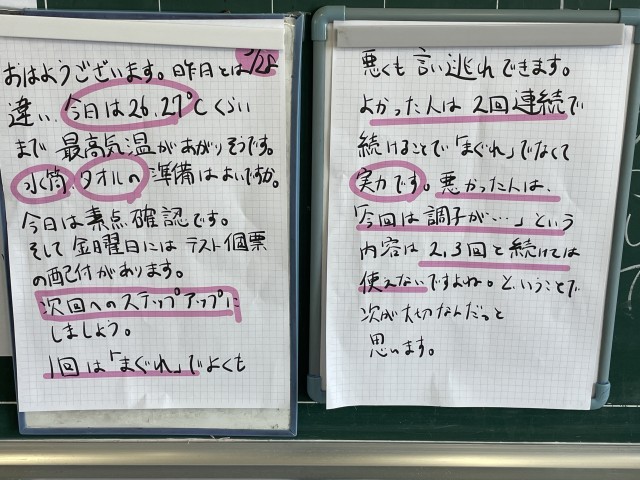 5/28
おはようございます。昨日とは
違い、今日は26、27℃くらい
まで最高気温があがりそうです。
水筒、タオルの準備はよいですか。
今日は素点確認です。
そして金曜日にはテスト個票
の配付があります。
次回へのステップアップに
しましょう。
1回は「まぐれ」でよくも
悪くも言い逃れできます。
よかった人は2回連続で
続けることで「まぐれ」でなくて
実力です。悪かった人は、
「今回は調子が…」という
内容は2,3回と続けては
使えないですよね。ということで
次が大切なんだっと
思います。